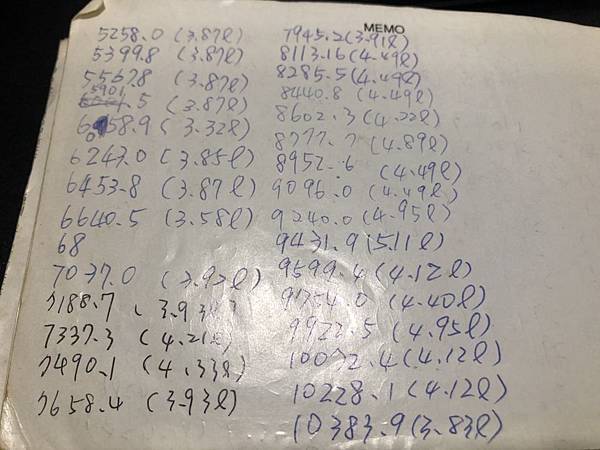 MEMO
5258.0 (3.87ℓ)
5399.8 (3.87ℓ)
5567.8 (3.87ℓ)
5901
.5 (3.87ℓ)
6058.9 (3.32ℓ)
6247.0 (3.85ℓ)
6453.8 (3.87ℓ)
6640.5 (3.58ℓ)
68
7037.0 (3.93ℓ)
7188.7 (3.93ℓ)
7337.3 (4.21ℓ)
7490.1 (4.33ℓ)
7658.4 (3.93ℓ)
7945.2 (3.91ℓ)
8113.16 (4.49ℓ)
8285.5 (4.49ℓ)
8440.8 (4.49ℓ)
8602.3 (4.22ℓ)
8777.7 (4.89ℓ)
8952.6 (4.49ℓ)
9096.0 (4.49ℓ)
9240.0 (4.95ℓ)
9431.9 (5.11ℓ)
9599.4 (4.12ℓ)
9754.0 (4.40ℓ)
9922.5 (4.95ℓ)
10072.4 (4.12ℓ)
10228.1 (4.12ℓ)
10383.9 (3.83ℓ)